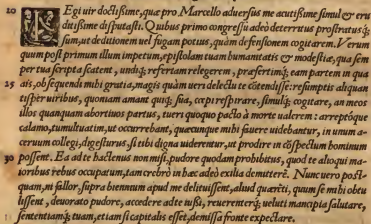 20 LEgi uir doctissime, quæ pro Marcello aduersus me acutissime simul & eru
ditissime disputasti. Quibus primo congressu adeò deterritus prostratus q́;
sum, ut deditionem uel fugam potius, quàm defensionem cogitarem. Verum
quum post primum illum impetum, epistolam tuam humanitatis & modestiæ, qua sem
per tua scripta scatent, undiq; refertam relegerem, præsertimq́; eam partem in qua
25 ais, obsequendi mihi gratia, magis quàm ueri delectu te cōtendisse: resumptis aliquan
tisper uiribus, quoniam amant quiq; sua, cœpi respirare, simulq́; cogitare, an meos
illos quanquam abortiuos partus, tueri quoquo pacto à morte ualerem: arreptóque
calamo, tumultuatim, ut occurrebant, quæcunque mihi fauere uidebantur, in unum a-
ceruum collegi, digesturus, si tibi digna uiderentur, ut prodire in cōspectum hominum
30 possent. Ea ad te hactenus non misi, pudore quodam prohibitus, quod te alioqui ma-
ioribus rebus occupatum, tam crebrò in hæc adeò exilia demitterē. Nunc uero post-
quam, ni fallor, supra biennium apud me delituissent, aliud quæreti, quum se mihi obtu
lissent, deuorato pudore, accedere ad te iussi, reuerenterq́; ueluti mancipia salutare,
sententiamq́; tuam, etiam si capitalis esset, demissa fronte expectare.